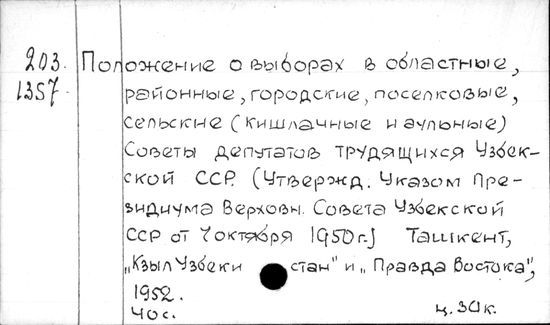 203. Положение о выборах в областные,
1357. районные, городские, поселковые,
сельские (кишлачные и аульные)
Советы депутатов трудящихся Узбек-
ской ССР. (Утвержд. Указом Пре-
зидиума Верховн. Совета Узбекской
ССР от 7 октября 1950г.) Ташкент,
„Кзыл Узбеки стан" и „Правда Востока",
1952.
40 с. ц. 30 к.